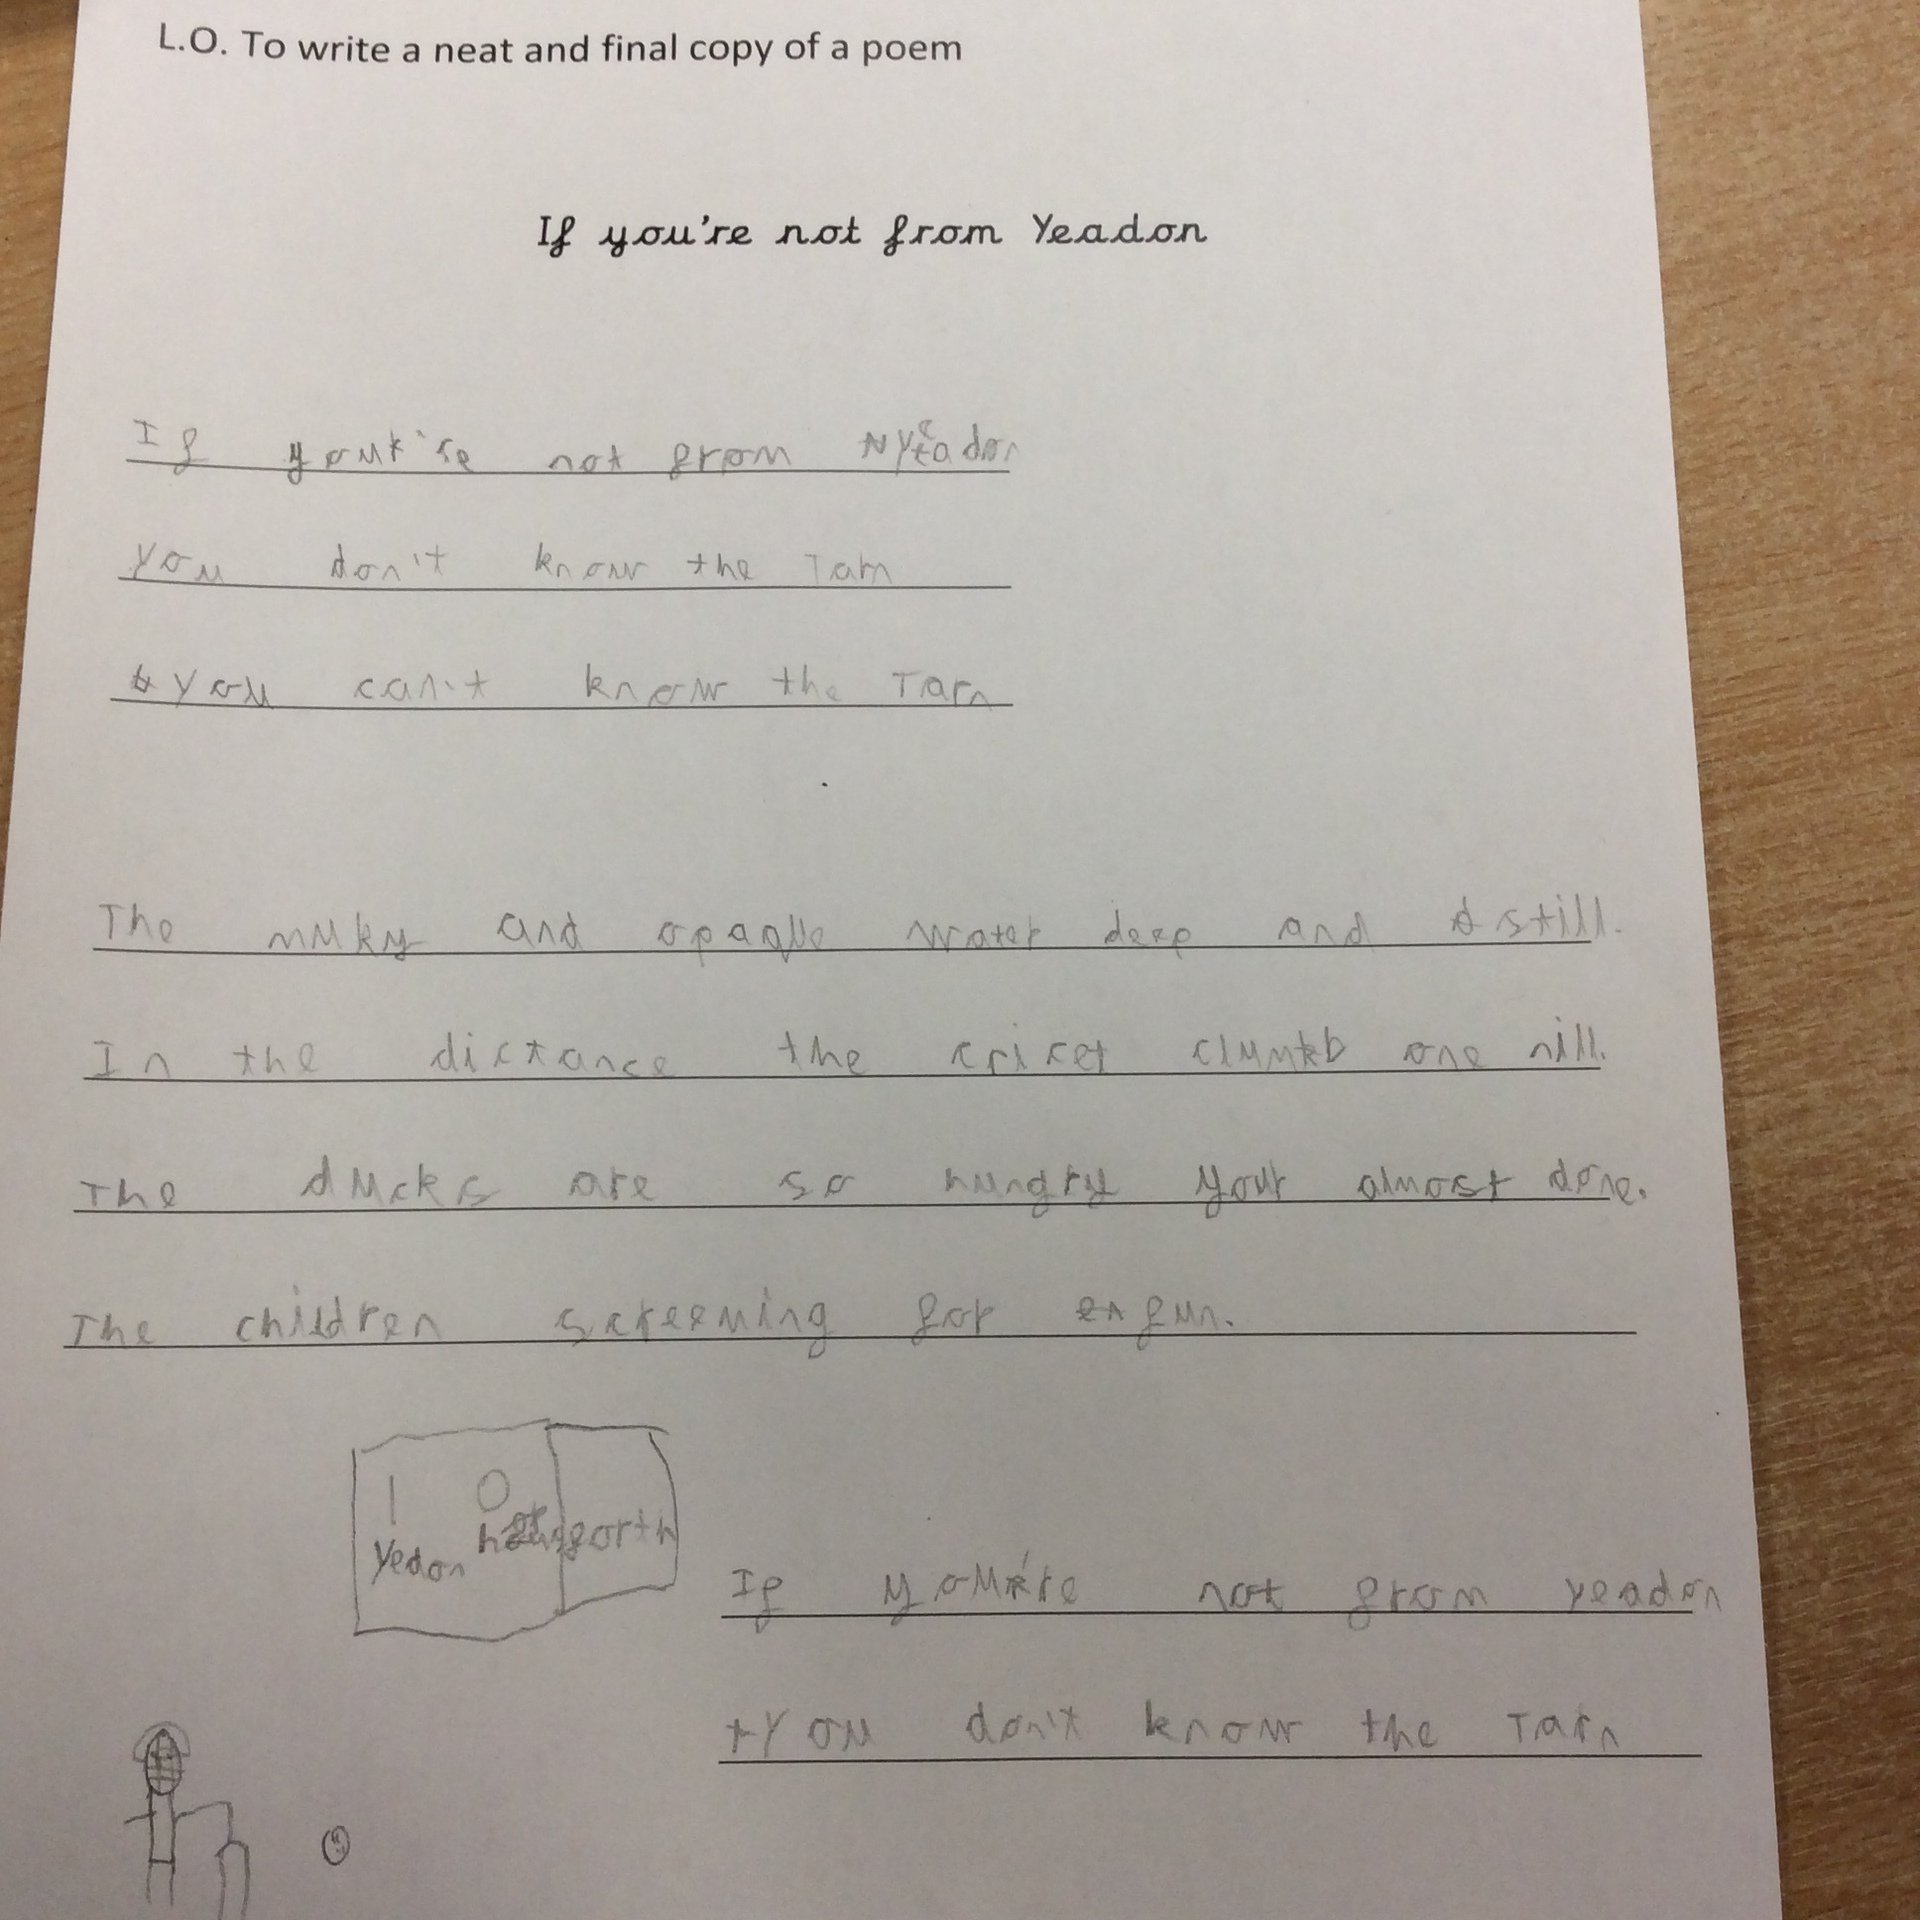 L.O. To write a neat and final copy of a poem
If you're not from Yeadon
If your're not from Yeadon
you don't know the Tarn
you can't know the Tarn
The muky and opaque water deep and still.
In the dictance the cricet club one nill.
The ducks are so hungry your almost done.
The children screeming for fun.
1 0
Yedon horsforth
If you're not from yeadon
you don't know the Tarn